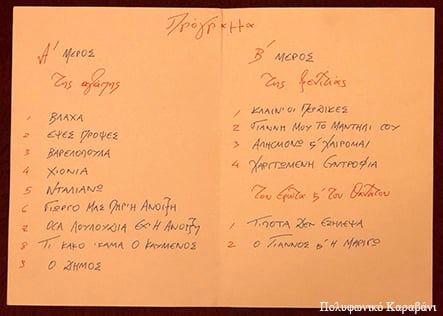 Πρόγραμμα
Α' ΜΕΡΟΣ
Της αγάπης
1 ΒΛΑΧΑ
2 ΕΨΕΣ ΠΡΟΨΕΣ
3 ΒΑΡΕΛΟΠΟΥΛΑ
4 ΧΙΟΝΙΑ
5 ΝΤΑΛΙΑΝΩ
6 ΓΙΩΡΓΟ ΜΑΣ ΠΑΡ'Η ΑΝΟΙΞΗ
7 ΟΣΑ ΛΟΥΛΟΥΔΙΑ ΕΧ'Η ΑΝΟΙΞΗ
8 ΤΙ ΚΑΚΟ 'ΚΑΜΑ Ο ΚΑΥΜΕΝΟΣ
9 Ο ΔΗΜΟΣ
Β' ΜΕΡΟΣ
Της ξενιτιάς
1 ΚΛΑΙΝ' ΟΙ ΠΕΡΔΙΚΕΣ
2 ΓΙΑΝΝΗ ΜΟΥ ΤΟ ΜΑΝΤΗΛΙ ΣΟΥ
3 ΑΛΗΣΜΟΝΩ & ΧΑΙΡΟΜΑΙ
4 ΧΑΡΙΤΩΜΕΝΗ ΣΥΝΤΡΟΦΙΑ
Του έρωτα & του θανάτου
1 ΤΙΠΟΤΑ ΔΕΝ ΕΖΗΛΕΨΑ
2 Ο ΓΙΑΝΝΟΣ & Η ΜΑΡΙΓΩ
Πολυφωνικό Καραβάνι